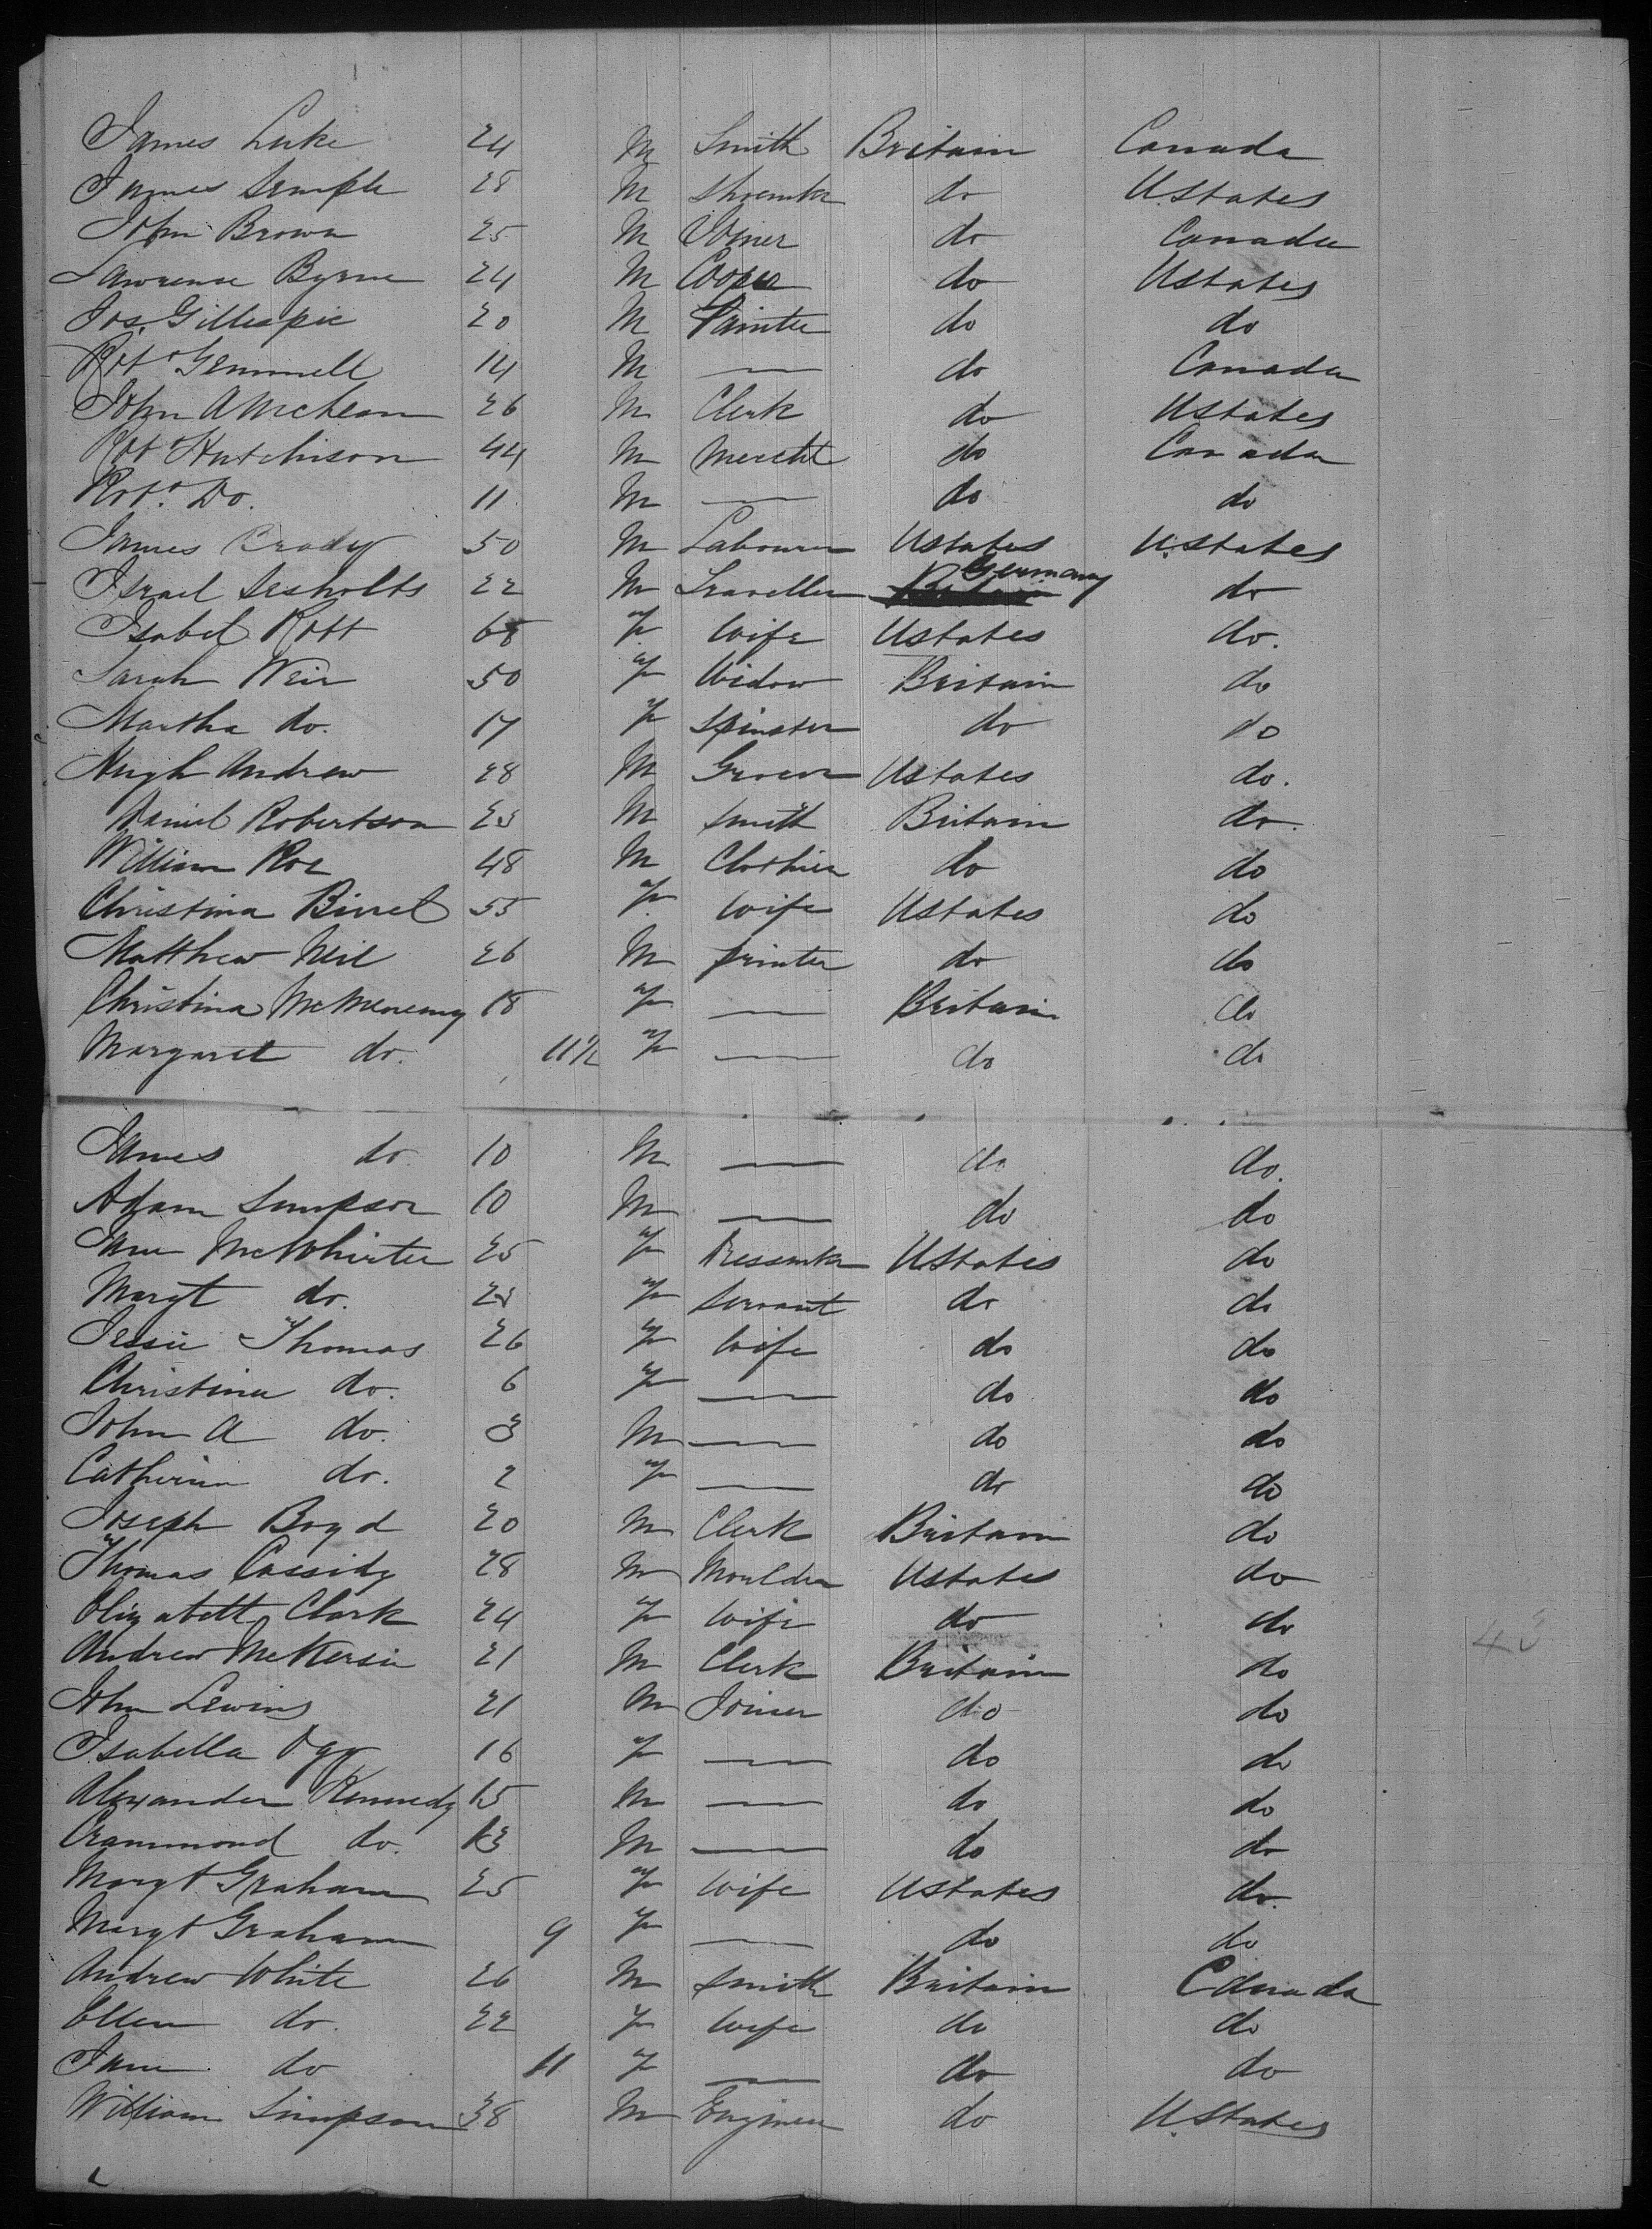 James Luke 24 M Smith Britain Canada
James Semple 28 M Shoemkr do U.States
John Brown 25 M Joiner do Canada
Lawrence Byrne 24 M Cooper do UStates
Jos. Gillespie 20 M Painter do do
Robt Gemmell 14 M — do Canada
John A McLean 26 M Clerk do UStates
Robt Hutchison 44 M Mercht do Canada
Robt. Do. 11 M — do do
James Brady 50 M Labourer UStates U.States
Israel 22 M Traveller Germany do
Isabel Robb 68 F Wife UStates do.
Sarah Weir 50 F Widow Britain do
Martha do. 17 F Spinster do do
Hugh Andrew 28 M Grocer UStates do.
Daniel Robertson 23 M Smith Britain do.
William Roe 48 M Clothier do do
Christina Birrel 55 F Wife UStates do
Matthew Neil 26 M Printer do do
Christina McMenemy 18 F — Britain do
Margaret do. 11½ F — do do
James do. 10 M — do do.
Adam Simpson 10 M — do do
Jane McWhirter 25 F Dressmkr UStates do
Margt do. 23 F Servant do do
Jessie Thomas 26 F Wife do do
Christina do. 6 F — do do
John A do. 3 M — do do
Catherine do. 2 F — do do
Joseph Boyd 20 M Clerk Britain do
Thomas Cassidy 28 M Moulder UStates do
Elizabeth Clark 24 F Wife do do
Andrew McKersie 21 M Clerk Britain do
John Lewins 21 M Joiner do do
Isabella Ogg 16 F — do do
Alexander Kennedy 15 M — do do
Crammond do. 13 M — do do
Margt Graham 25 F Wife UStates do.
Margt Graham 9 F — do do
Andrew White 26 M Smith Britain Canada
Ellen do. 22 F Wife do do
Jane do 11 F — do do
William Simpson 38 M Engineer do U.States
43